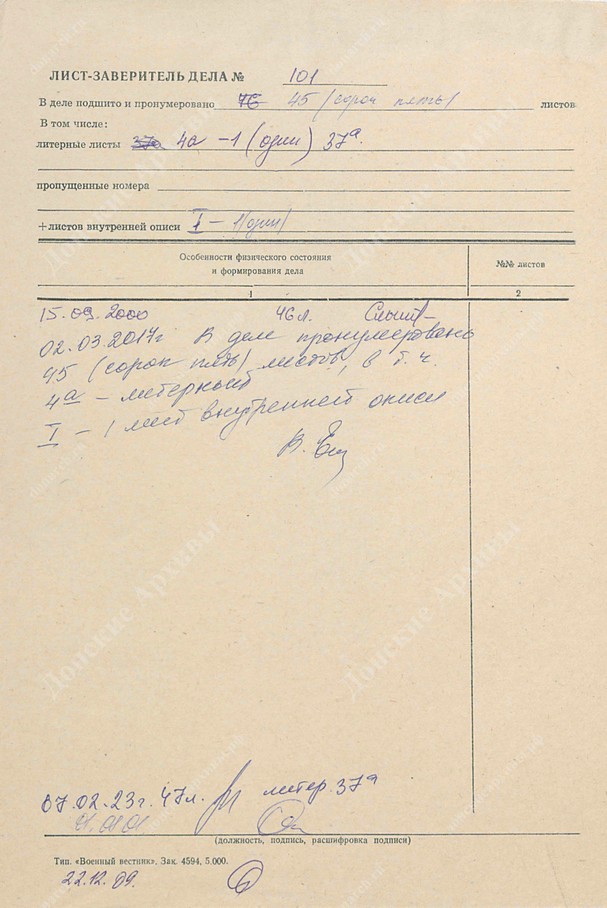 ЛИСТ-ЗАВЕРИТЕЛЬ ДЕЛА № 101
В деле подшито и пронумеровано 76 45 (сорок пять) листов
В том числе:
литерные листы 37а 4а – 1 (один) 37а.
пропущенные номера
+листов внутренней описи I – 1 (один)
Особенности физического состояния
и формирования дела
№№ листов
1
2
15.09.2000 46 л.
02.03.2017г В деле пронумеровано
45 (сорок пять) листов, в т. ч.
4а – литерный
I – 1 лист внутренней описи
07.02.23г. 47л. литер. 37а
01.01.01
(должность, подпись, расшифровка подписи)
Тип. «Военный вестник», Зак. 4594, 5.000.
22.12.09.
Донские Архивы